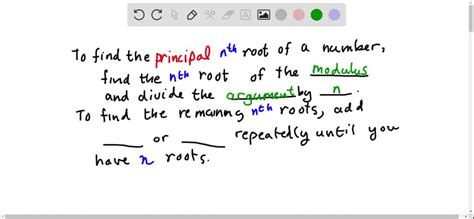 To find the principal nth root of a number,
find the nth root of the modulus
and divide the argument by n.
To find the remaining nth roots, add
____ or ____ repeatedly until you
have n roots.